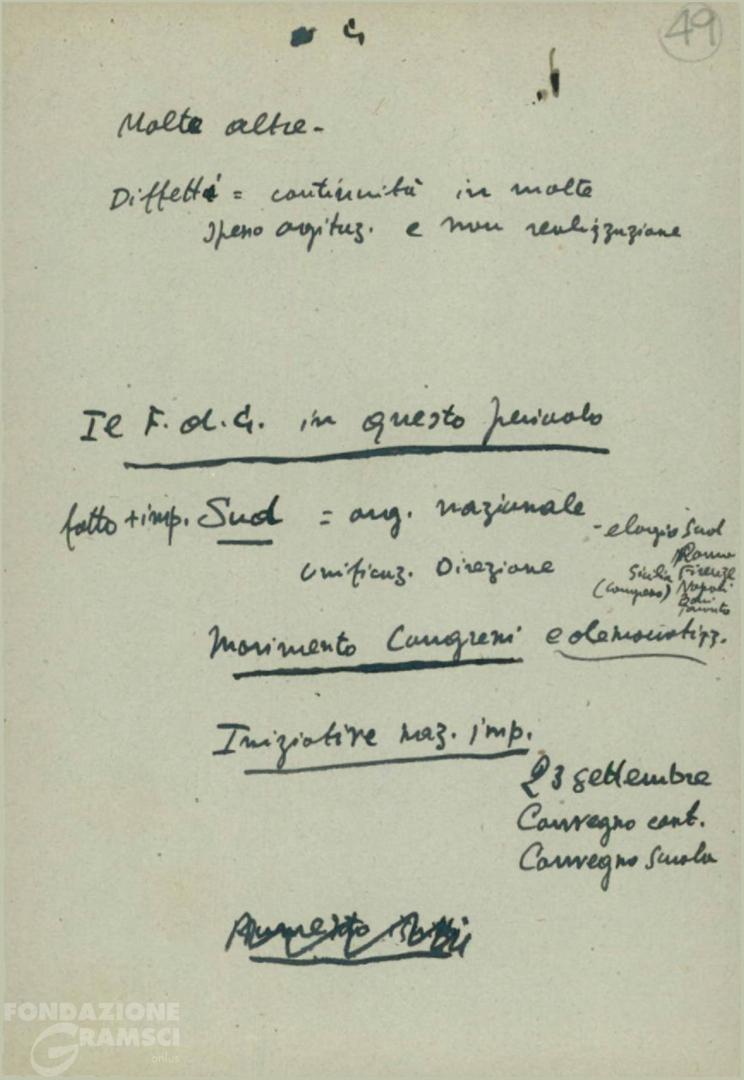 49
G
Molte altre -
Diffetti = continuità in molte
spesso agitaz. e non realizzazione
Il F.d.G. in questo periodo
fatto + imp. Sud = org. nazionale
- elogio Sud
Roma
Sicilia Firenze
(Compeso) Napoli
Bari
Taranto
Unificaz. Direzione
Movimento Congressi e democratizz.
Iniziative naz. imp.
23 settembre
Convegno cont.
Convegno Scuola
FONDAZIONE
GRAMSCI
onlus